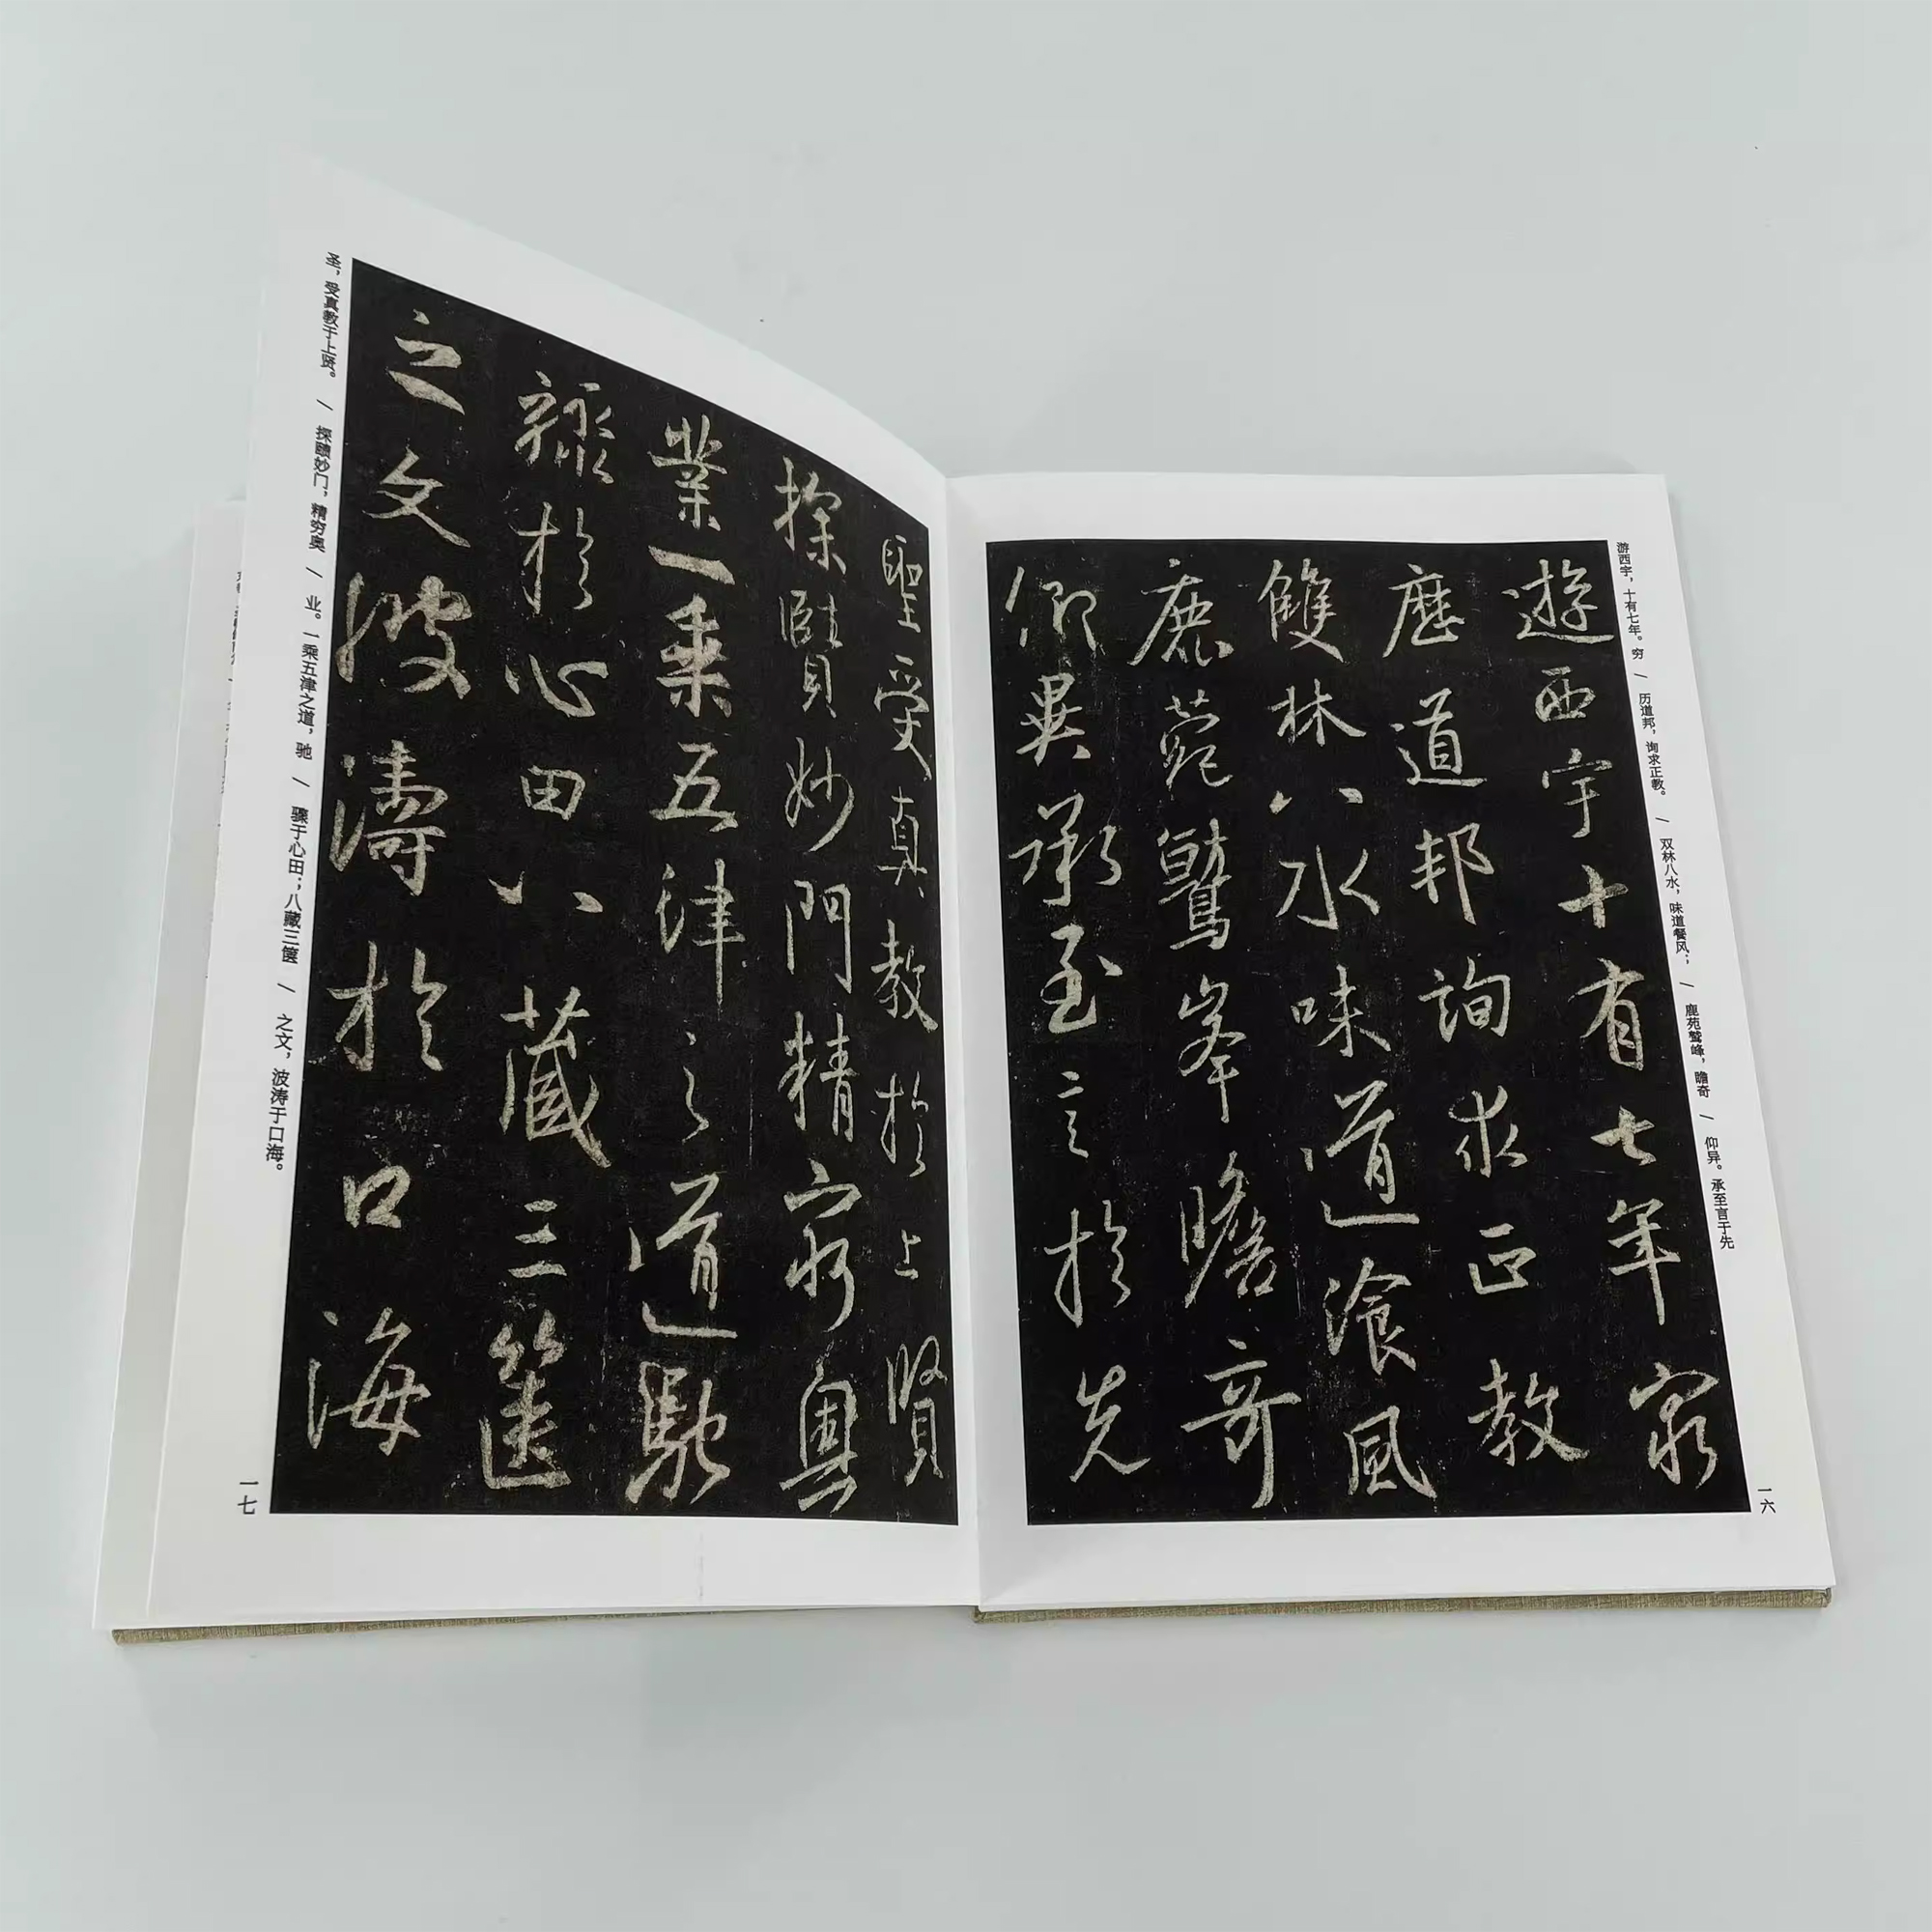 游西宇，十有七年。穷 / 历道邦，询求正教。 / 双林八水，味道餐风； / 鹿苑鹫峰，瞻奇 / 仰异。承至言于先
遊西宇十有七年窮
歷道邦詢求正教
雙林八水味道飡風
鹿菀鷲峯瞻奇
仰異承至言於先
一六
聖受真教於上賢
探賾妙門精窮奧
業一乘五津之道馳
驟於心田八藏三篋
之文波濤於口海
圣，受真教于上贤。 / 探赜妙门，精穷奥 / 业。一乘五津之道，驰 / 骤于心田；八藏三箧 / 之文，波涛于口海。
一七